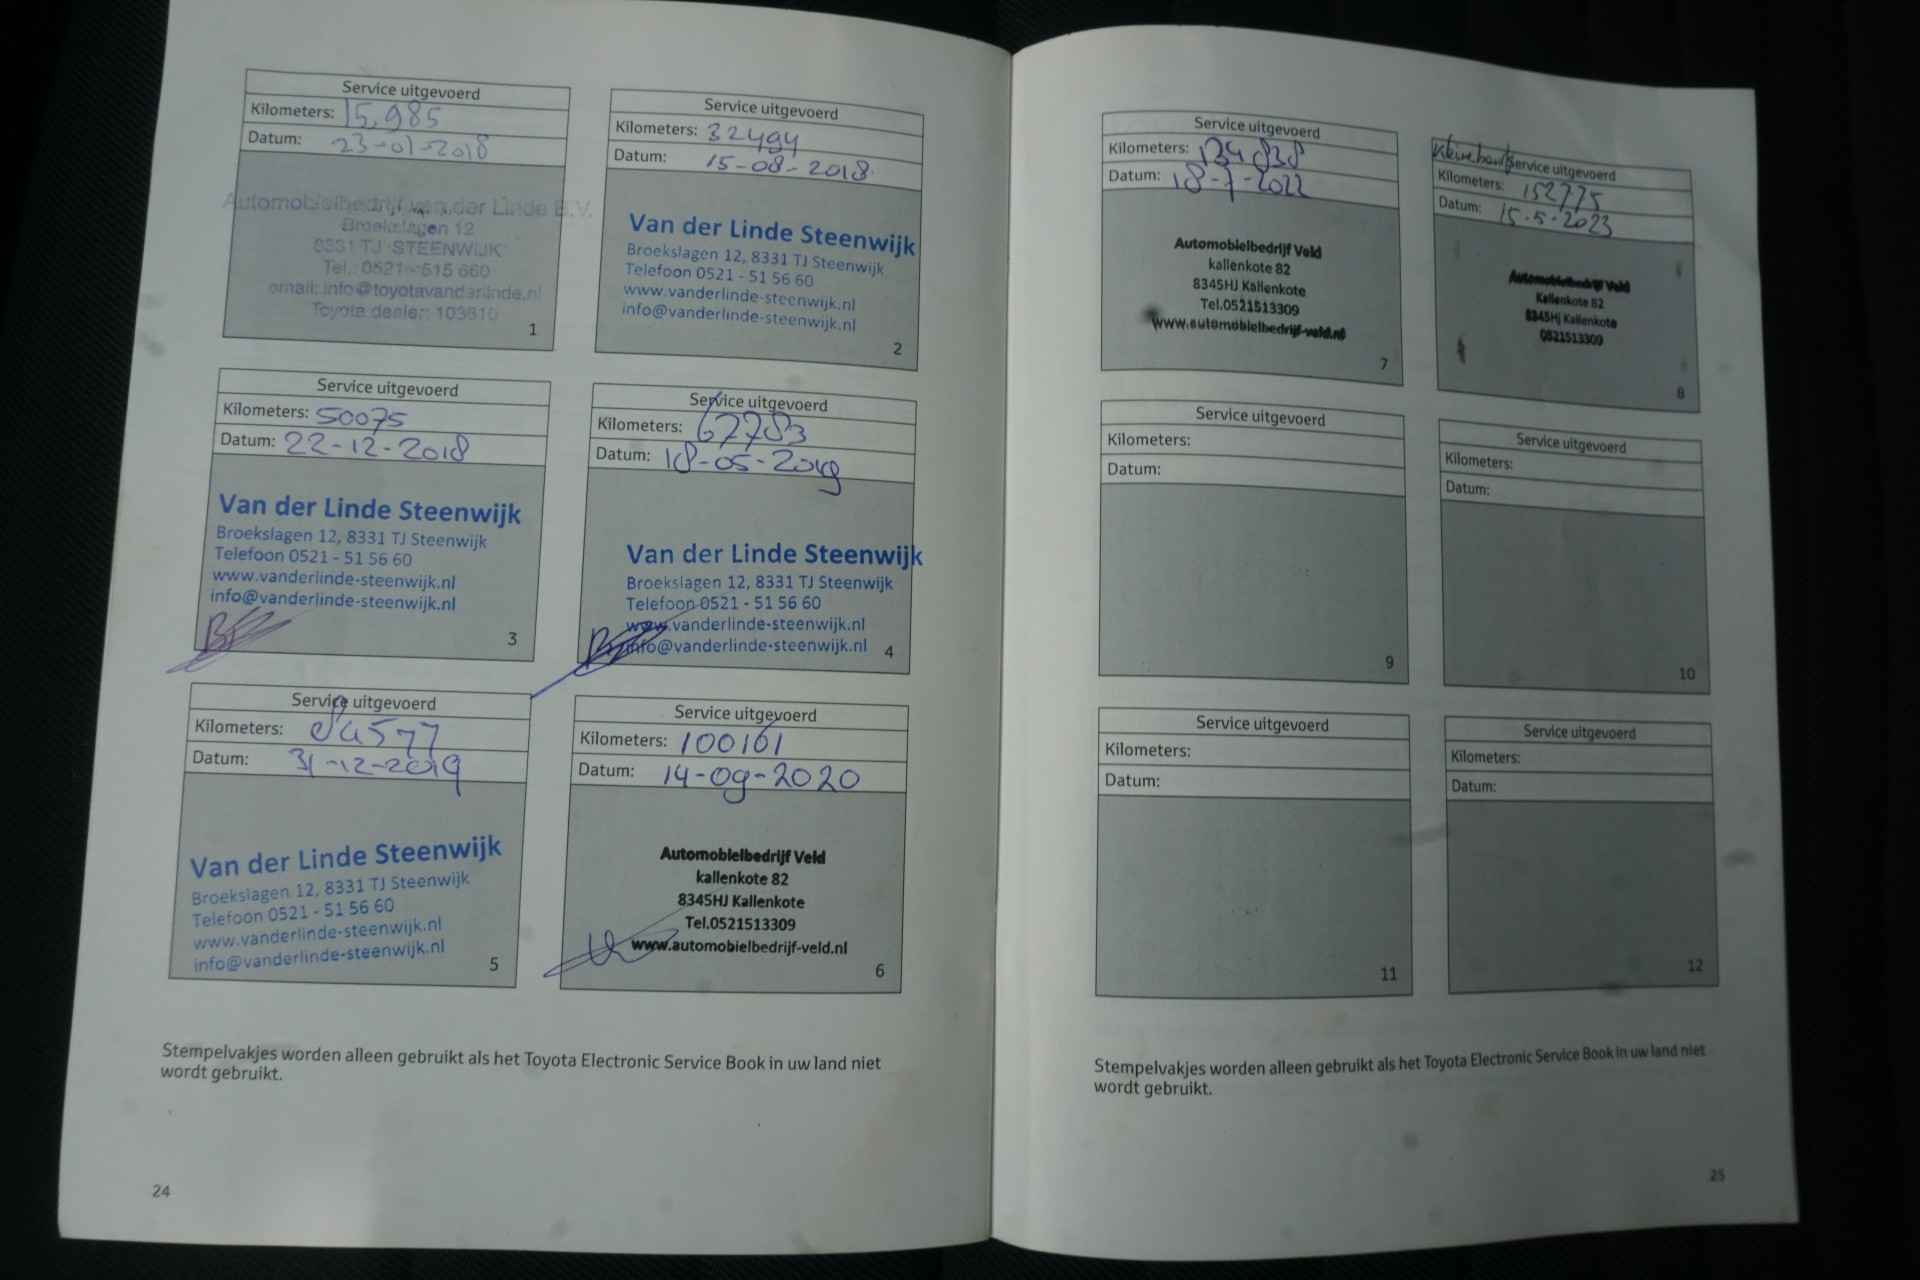 Service uitgevoerd
Kilometers: 15.985
Datum: 23-01-2018
Automobielbedrijf van der Linde B.V.
Broekslagen 12
8331 TJ STEENWIJK
Tel.: 0521 - 515 660
email: info@toyotavanderlinde.nl
Toyota dealer: 103610
1
Service uitgevoerd
Kilometers: 32494
Datum: 15-08-2018
Van der Linde Steenwijk
Broekslagen 12, 8331 TJ Steenwijk
Telefoon 0521 - 51 56 60
www.vanderlinde-steenwijk.nl
info@vanderlinde-steenwijk.nl
2
Service uitgevoerd
Kilometers: 50075
Datum: 22-12-2018
Van der Linde Steenwijk
Broekslagen 12, 8331 TJ Steenwijk
Telefoon 0521 - 51 56 60
www.vanderlinde-steenwijk.nl
info@vanderlinde-steenwijk.nl
3
Service uitgevoerd
Kilometers: 67783
Datum: 18-05-2019
Van der Linde Steenwijk
Broekslagen 12, 8331 TJ Steenwijk
Telefoon 0521 - 51 56 60
www.vanderlinde-steenwijk.nl
info@vanderlinde-steenwijk.nl
4
Service uitgevoerd
Kilometers: 84577
Datum: 31-12-2019
Van der Linde Steenwijk
Broekslagen 12, 8331 TJ Steenwijk
Telefoon 0521 - 51 56 60
www.vanderlinde-steenwijk.nl
info@vanderlinde-steenwijk.nl
5
Service uitgevoerd
Kilometers: 100161
Datum: 14-09-2020
Automobielbedrijf Veld
kallenkote 82
8345HJ Kallenkote
Tel.0521513309
www.automobielbedrijf-veld.nl
6
Stempelvakjes worden alleen gebruikt als het Toyota Electronic Service Book in uw land niet
wordt gebruikt.
24
Service uitgevoerd
Kilometers: 134838
Datum: 18-7-2022
Automobielbedrijf Veld
kallenkote 82
8345HJ Kallenkote
Tel.0521513309
www.automobielbedrijf-veld.nl
7
Service uitgevoerd
Kilometers: 152775
Datum: 15-5-2023
Automobielbedrijf Veld
Kallenkote 82
8345Hj Kallenkote
0521513309
8
Service uitgevoerd
Kilometers:
Datum:
9
Service uitgevoerd
Kilometers:
Datum:
10
Service uitgevoerd
Kilometers:
Datum:
11
Service uitgevoerd
Kilometers:
Datum:
12
Stempelvakjes worden alleen gebruikt als het Toyota Electronic Service Book in uw land niet
wordt gebruikt.
25